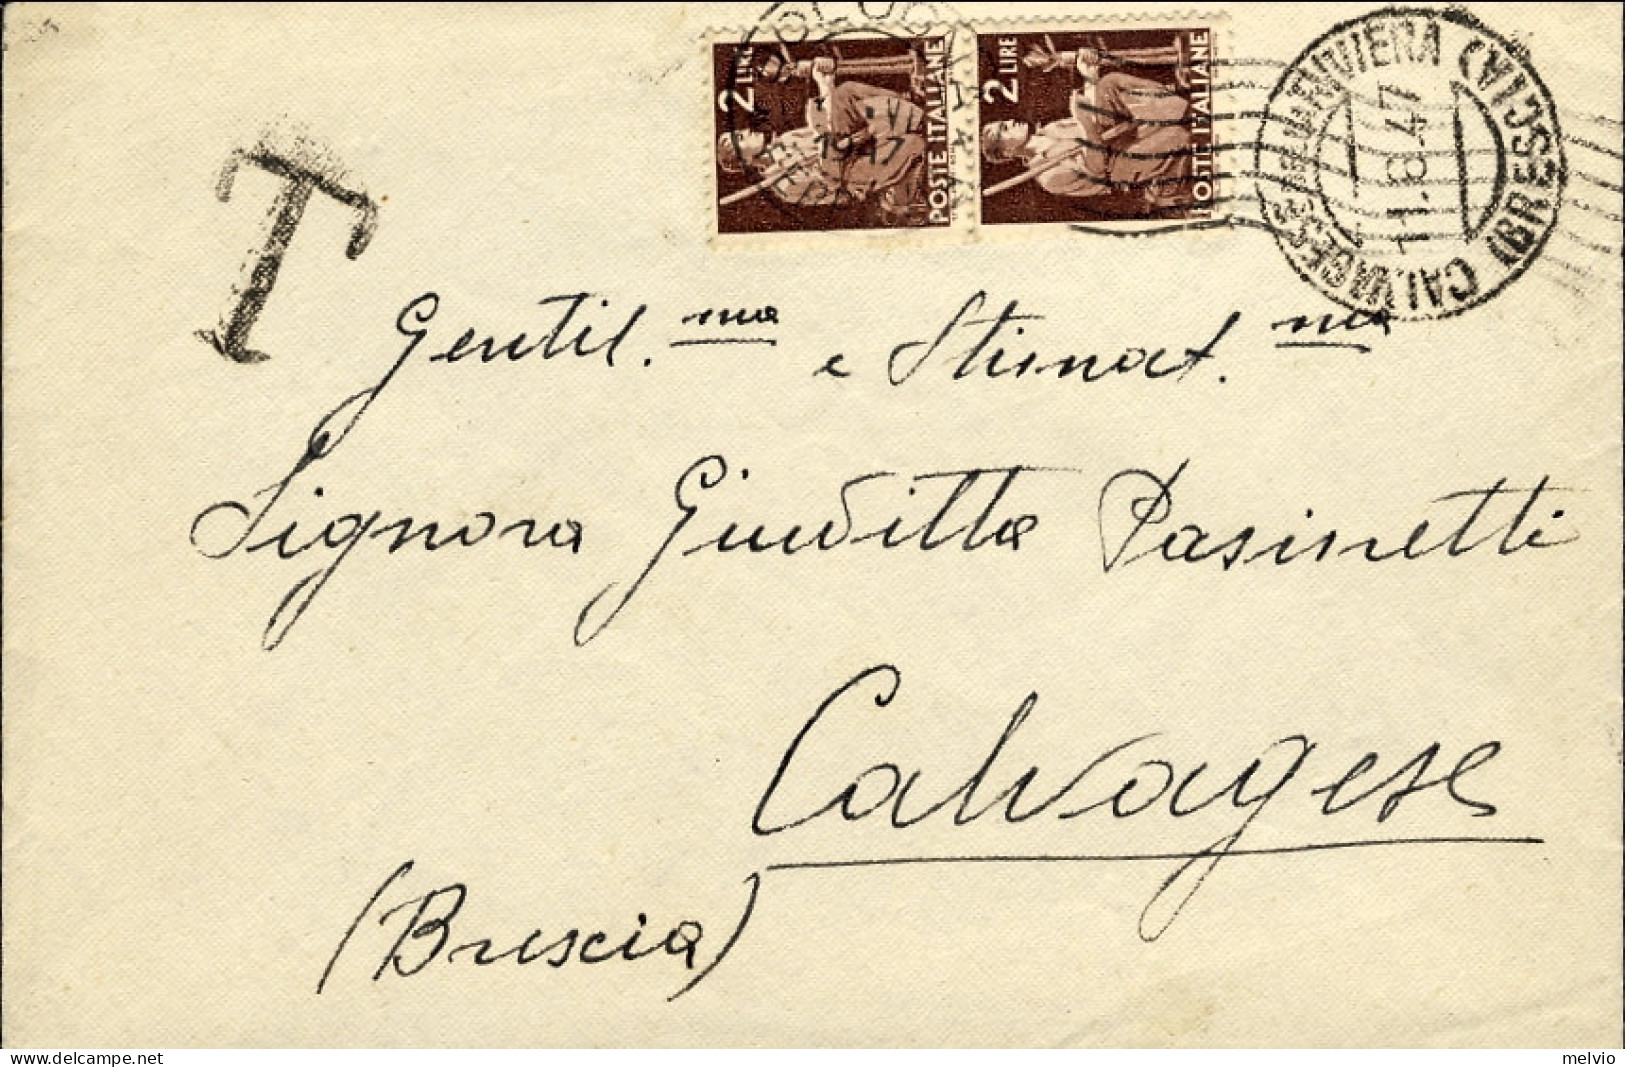 2 LIRE
POSTE ITALIANE
2 LIRE
POSTE ITALIANE
1947
CALVAGESE RIVIERA (BRESCIA)
11.8.47
T
Gentil.ma e Stimat.ma
Signora Giuditta Pasinetti
Calvagese
(Brescia)
delcampe.net
melvio